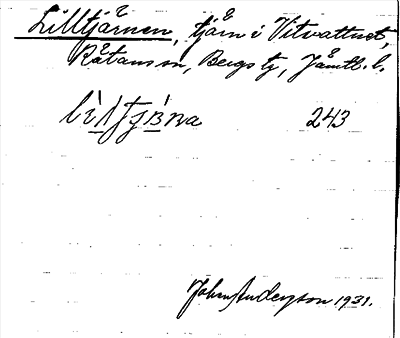 Lilltjärnen, tjärn i Vitvattnet,
Rätans sn, Bergs tg, Jämtl. l.
243
Johan Anderzson 1931.